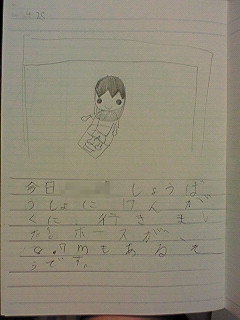 今日 しょうぼ
うしょに けんが
くに 行きまし
た。ホースが、
0.9mもあるそ
うです。